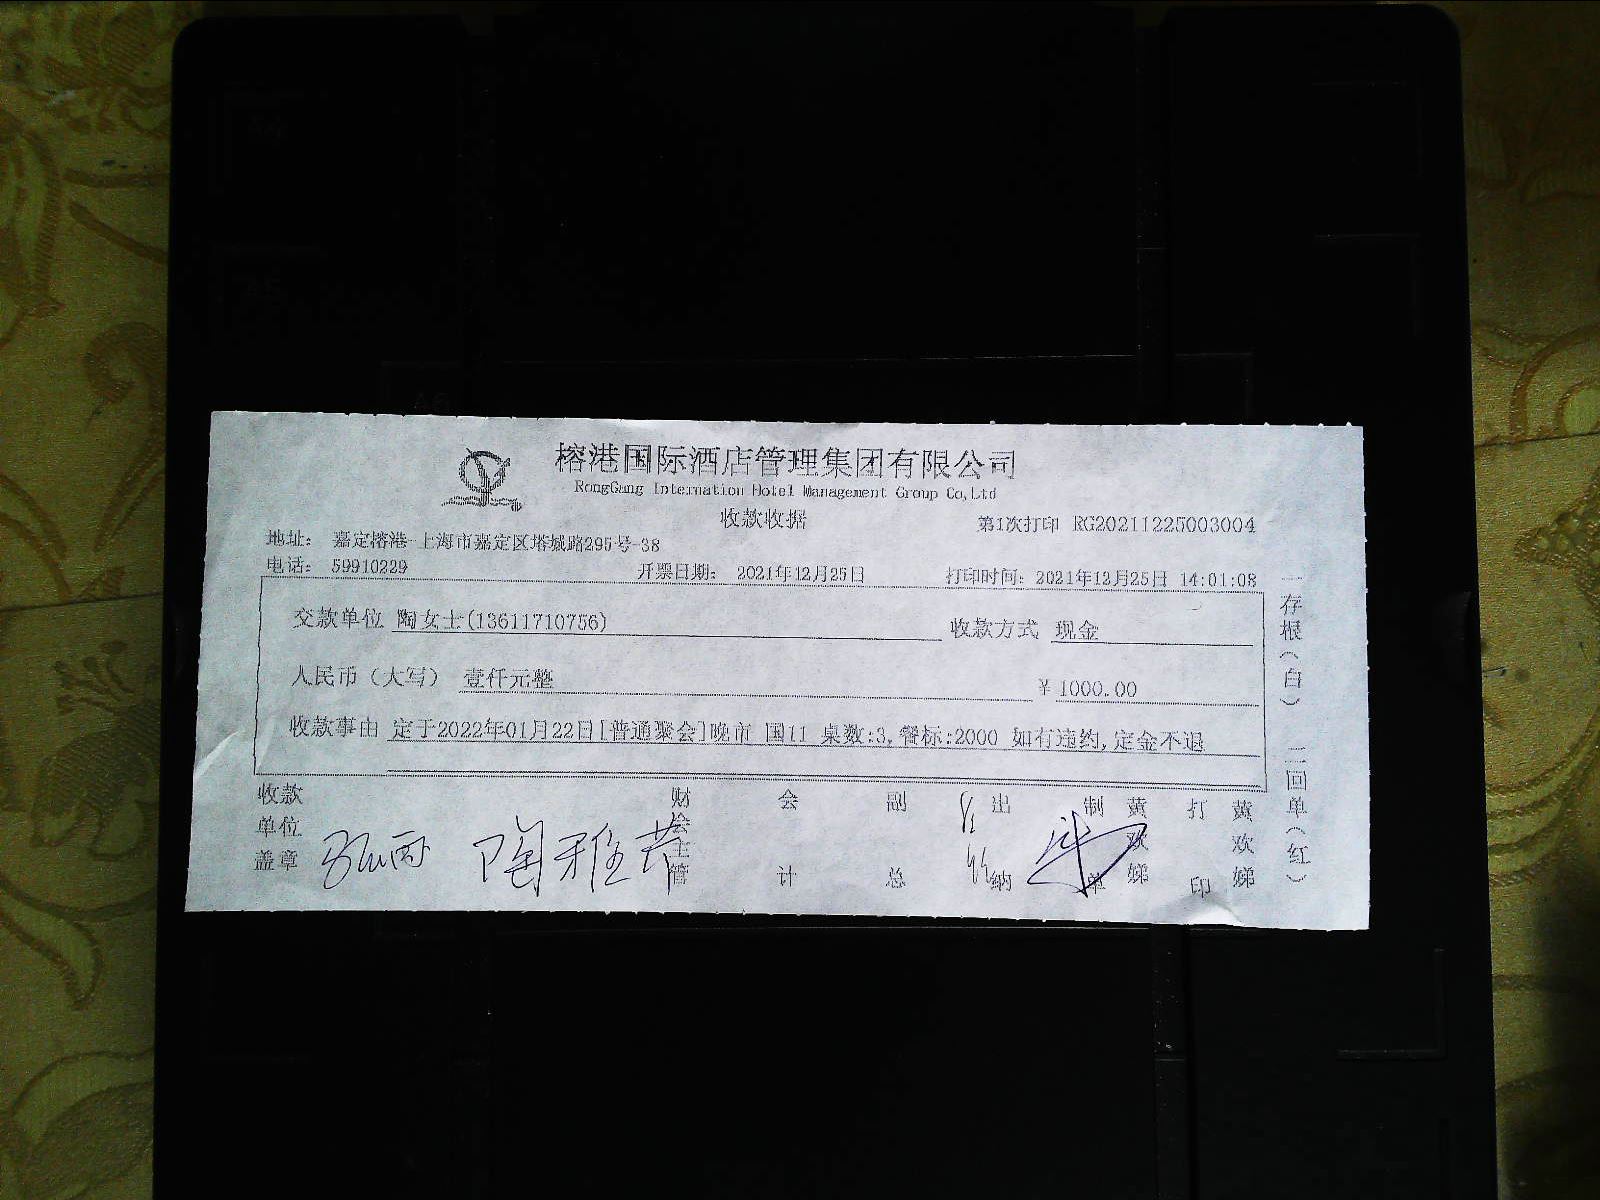 榕港国际酒店管理集团有限公司
RongGang Internation Hotel Management Group Co,Ltd
收款收据
第1次打印 RG20211225003004
地址: 嘉定榕港-上海市嘉定区塔城路295号-38
电话: 59910229 开票日期: 2021年12月25日 打印时间: 2021年12月25日 14:01:08
交款单位 陶女士(13611710756) 收款方式 现金
人民币(大写) 壹仟元整 ¥ 1000.00
收款事由 定于2022年01月22日[普通聚会]晚市 国11 桌数:3,餐标:2000 如有违约,定金不退
收款单位盖章 财会主管 会计 副总 出纳 制单 黄欢娣 打印 黄欢娣
陶雅芳
一存根(白) 二回单(红)